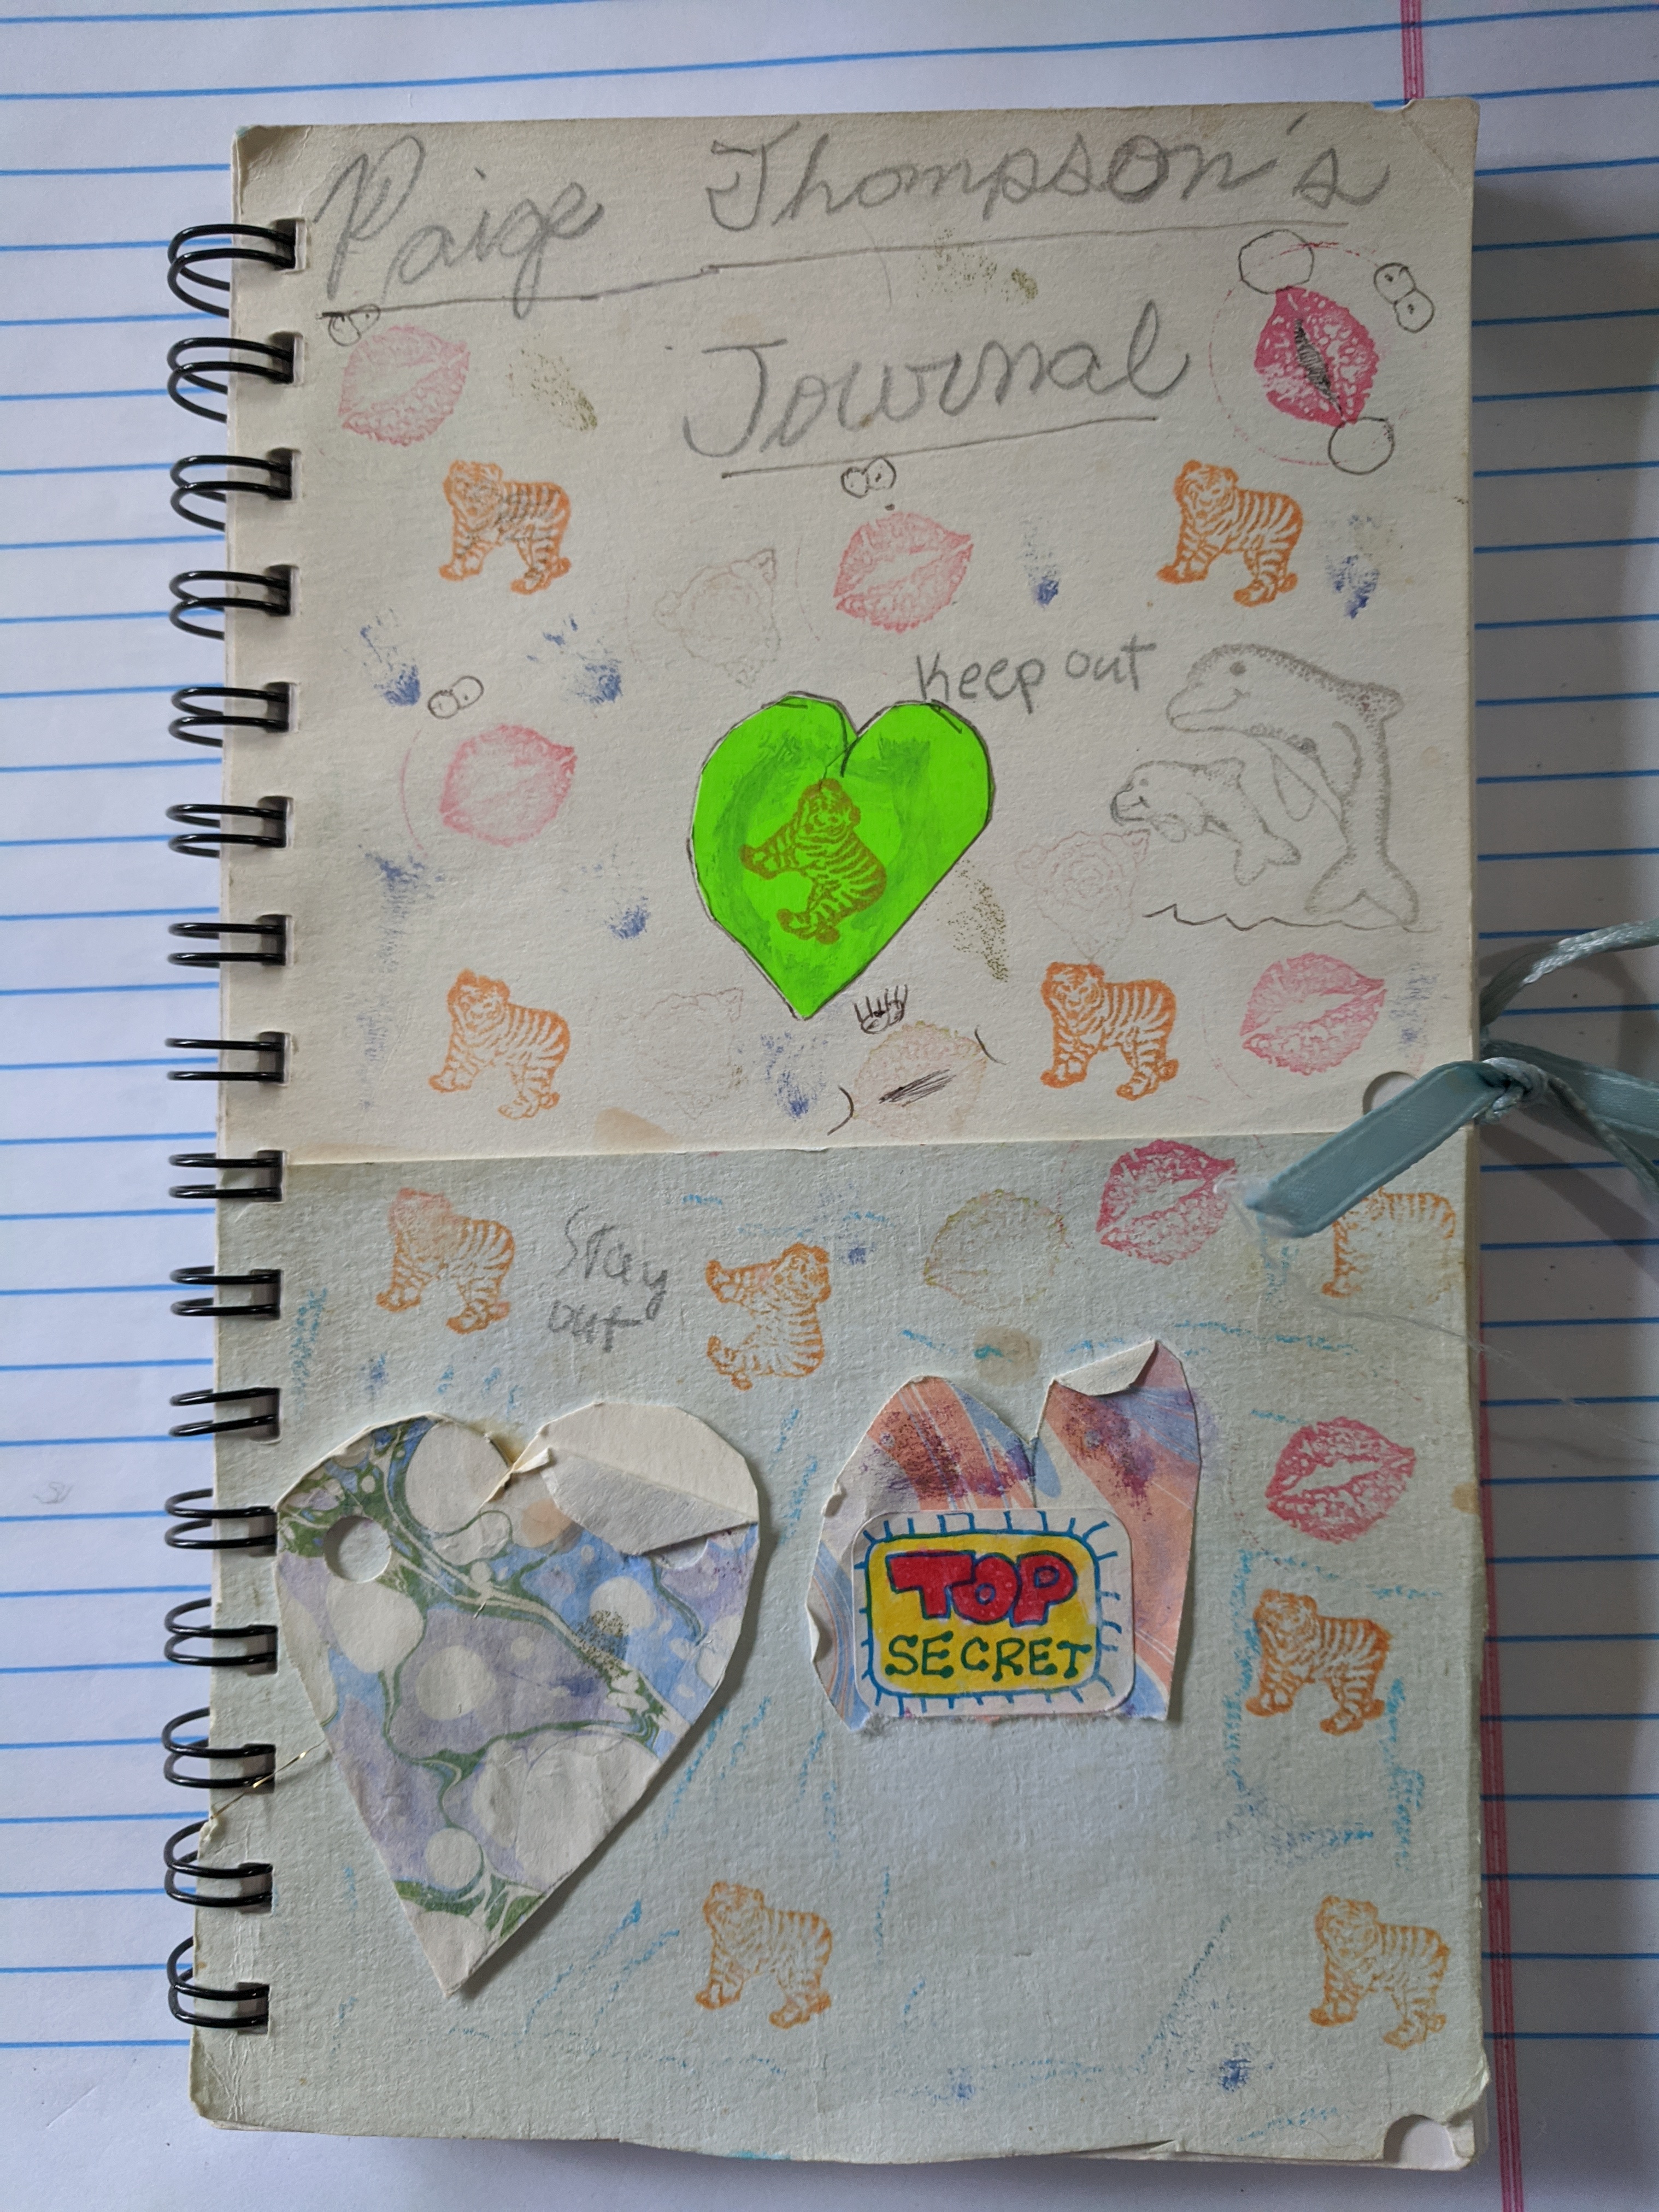 Paige Thompson's
Journal
Keep out
Stay
out
TOP
SECRET